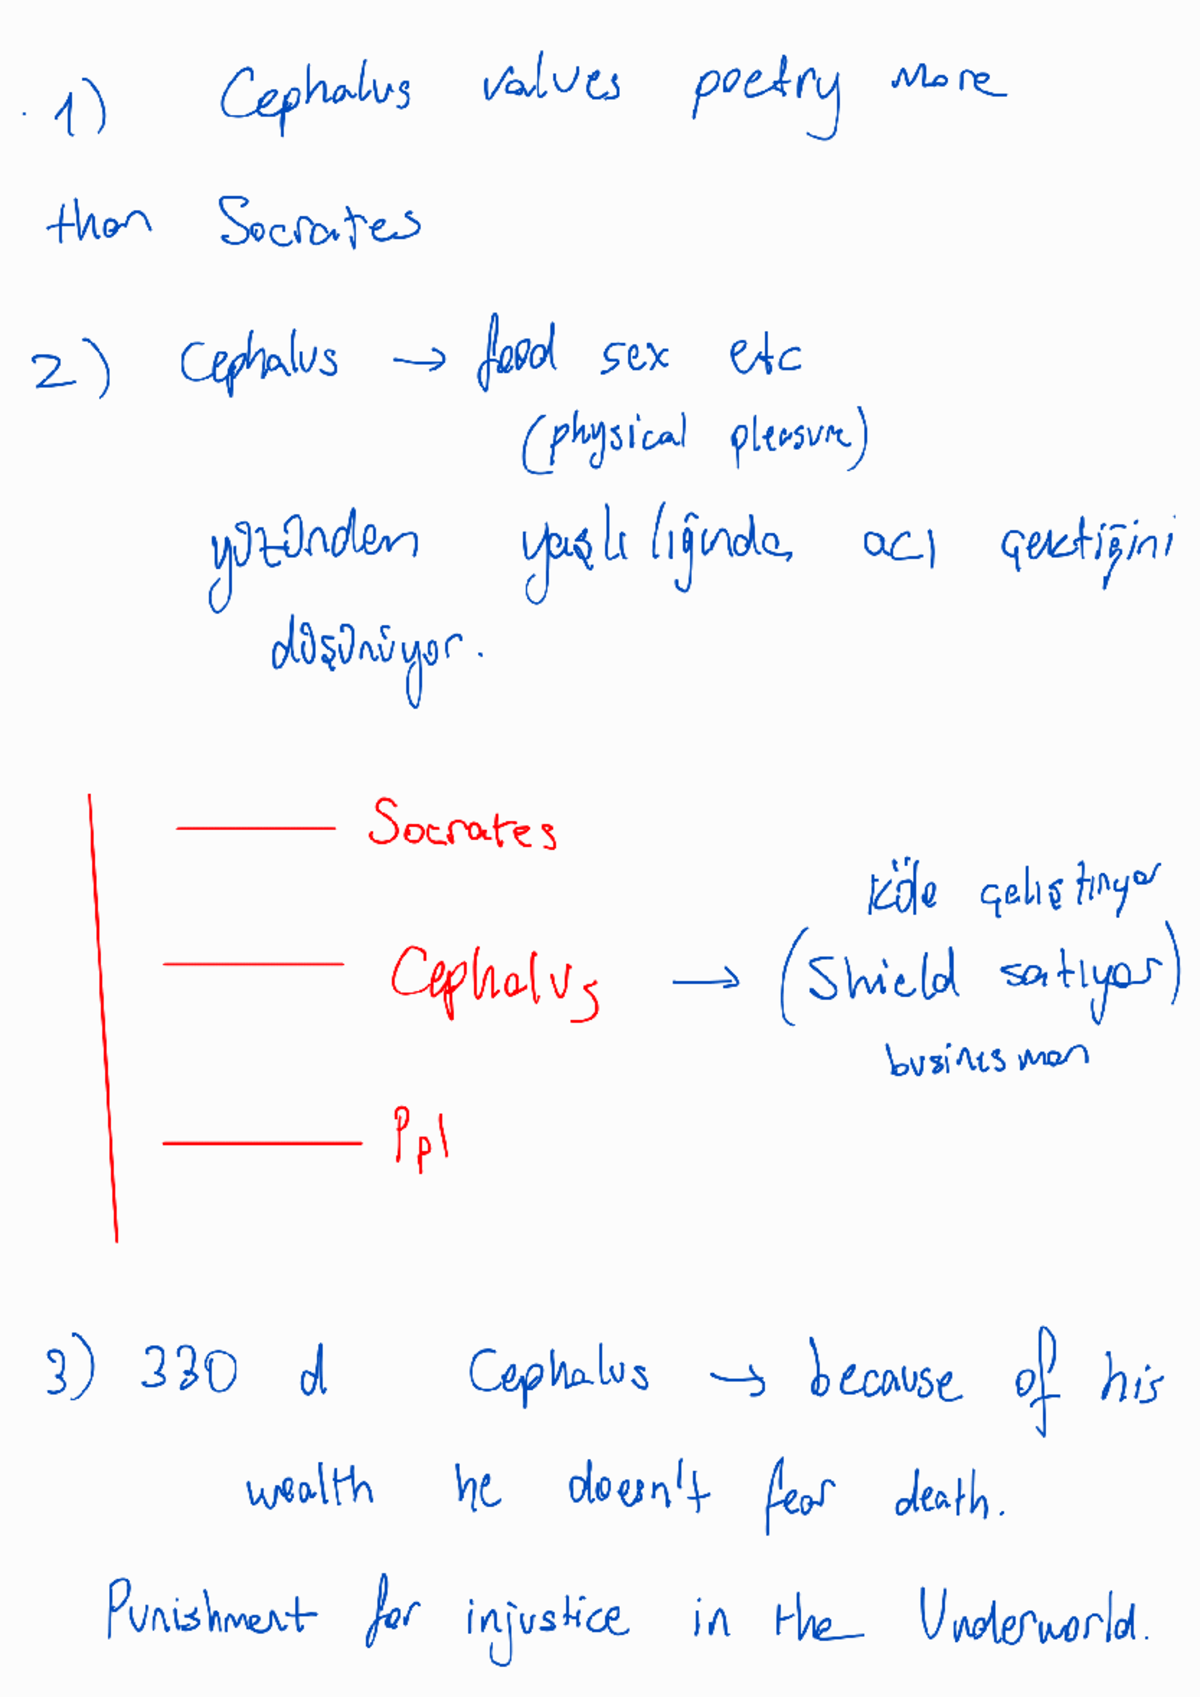 1) Cephalus values poetry more
than Socrates
2) Cephalus → food sex etc
(physical pleasure)
yüzünden yaşlılığında acı çektiğini
düşünüyor.
Socrates
köle geliştiriyor
Cephalus → (Shield satıyor)
businesman
Ppl
3) 330 d Cephalus → because of his
wealth he doesn't fear death.
Punishment for injustice in the Underworld.